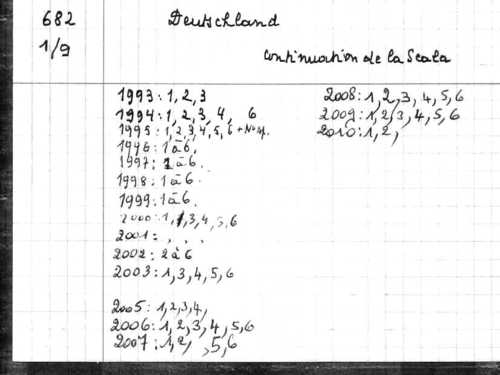 682
1/9
Deutschland
Continuation de la Scala
1993 : 1, 2, 3
1994 : 1, 2, 3, 4, 6
1995 : 1, 2, 3, 4, 5, 6 + N° sp.
1996 : 1 à 6.
1997 : 1 à 6.
1998 : 1 à 6.
1999 : 1 à 6.
2000 : 1, 1, 3, 4, 5, 6
2001 : , , .
2002 : 2 à 6
2003 : 1, 3, 4, 5, 6
2005 : 1, 2, 3, 4,
2006 : 1, 2, 3, 4, 5, 6
2007 : 1, 2, , 5, 6
2008 : 1, 2, 3, 4, 5, 6
2009 : 1, 2, 3, 4, 5, 6
2010 : 1, 2,